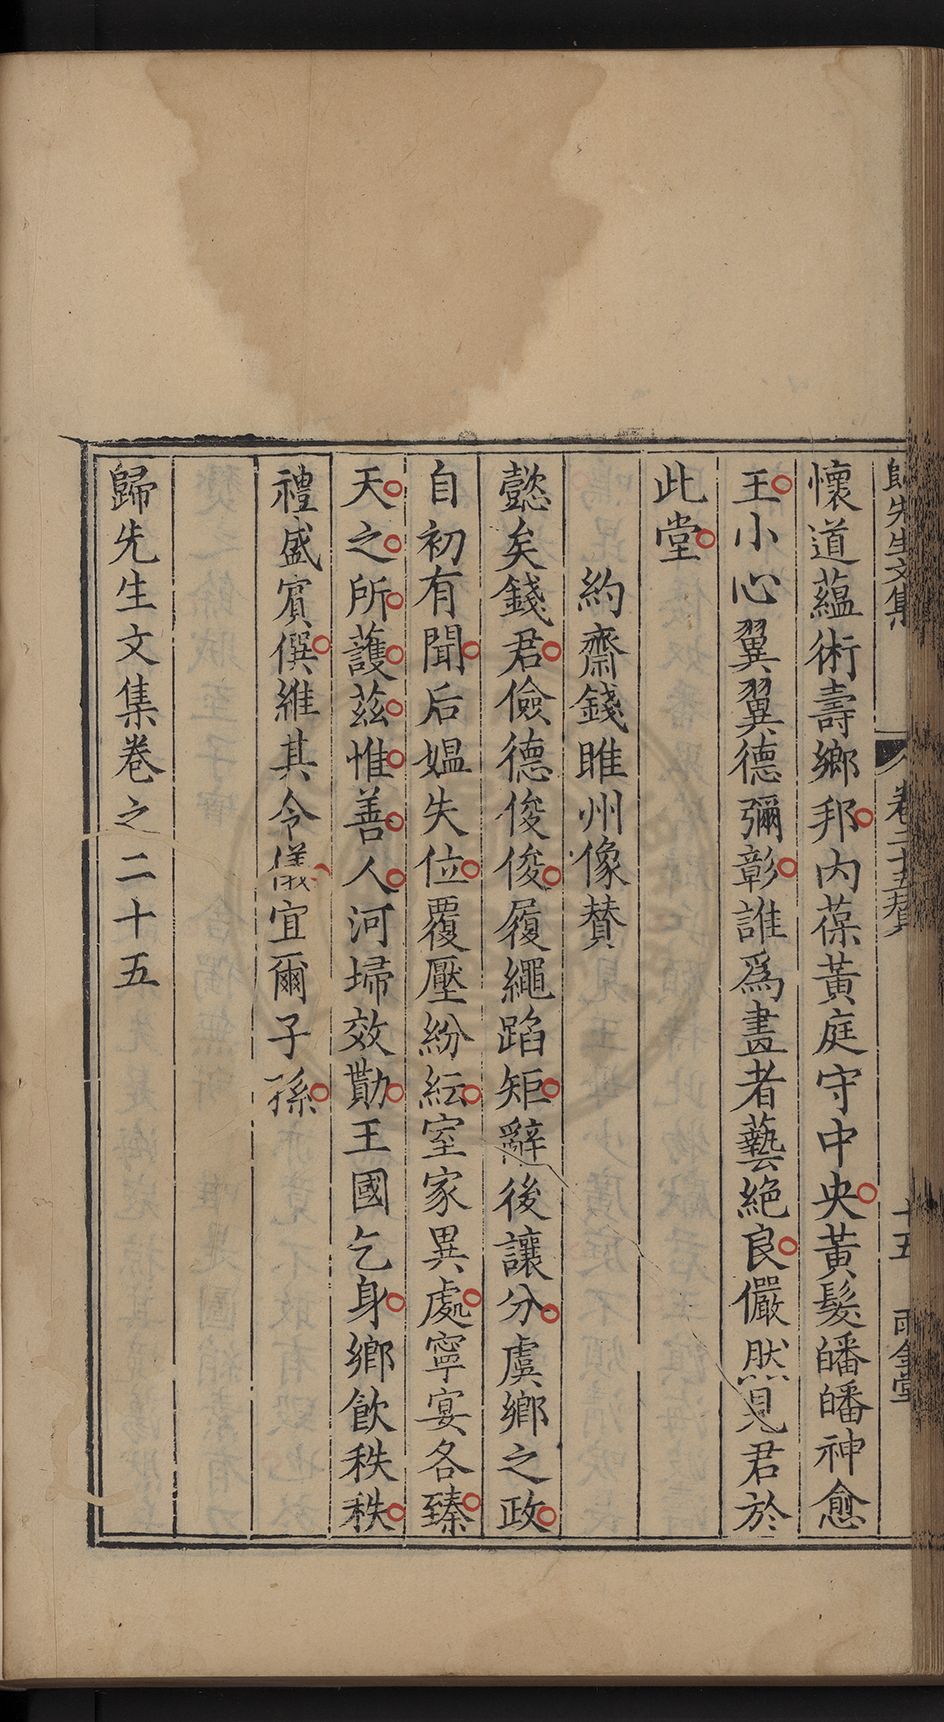 歸先生文集 卷二十五贊 十五 雨金堂
懷道蘊術壽鄉邦内葆黃庭守中央黃髮皤皤神愈
王小心翼翼德彌彰誰爲畫者藝絕良儼然見君於
此堂
約齋錢睢州像贊
懿矣錢君儉德俊俊履繩蹈矩辭後讓分虞鄉之政
自初有聞后媼失位覆壓紛紜室家異處寧宴各臻
天之所護茲惟善人河埽效勩王國乞身鄉飲秩秩
禮盛賓僎維其令儀宜爾子孫
歸先生文集卷之二十五